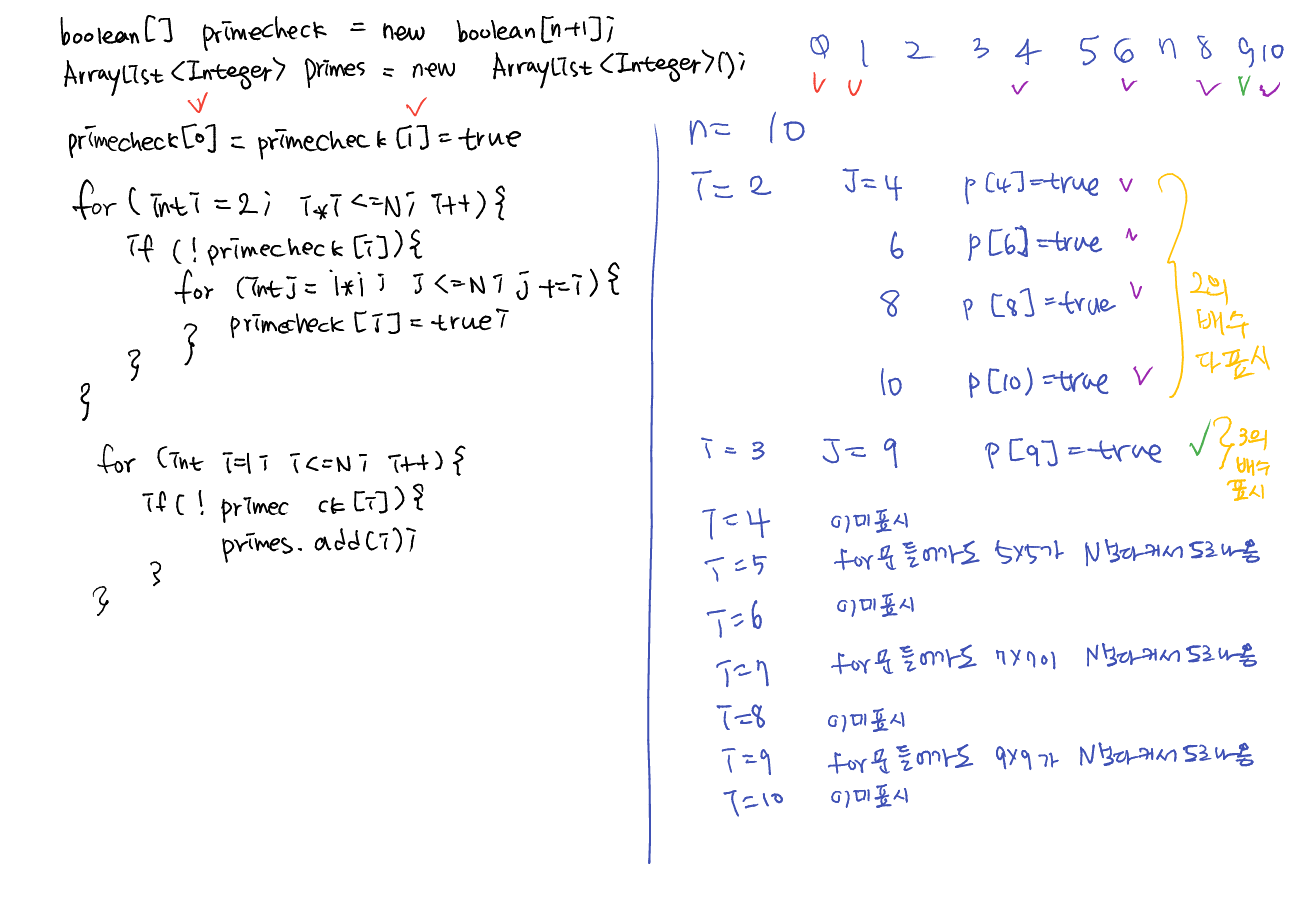 boolean[] primecheck = new boolean[n+1];
ArrayList<Integer> primes = new ArrayList<Integer>();
primecheck[0] = primecheck[1] = true
for (int i = 2; i*i <= N; i++){
if (!primecheck[i]){
for (int j = i*i; j <= N; j += i){
primecheck[i] = true;
}
}
}
for (int i=1; i<=N; i++){
if(! primec ck[i]){
primes.add(i);
}
}
0 1 2 3 4 5 6 7 8 9 10
n= 10
i=2 J=4 p[4]=true
6 p[6]=true
8 p[8]=true
10 p[10)=true
2의
배수
다표시
i=3 J=9 p[9]=true
3의
배수
표시
i=4 이미표시
i=5 for문들어가도 5x5가 N보다커서 도로나옴
i=6 이미표시
i=7 for문들어가도 7x7이 N보다커서 도로나옴
i=8 이미표시
i=9 for문들어가도 9x9가 N보다커서 도로나옴
i=10 이미표시